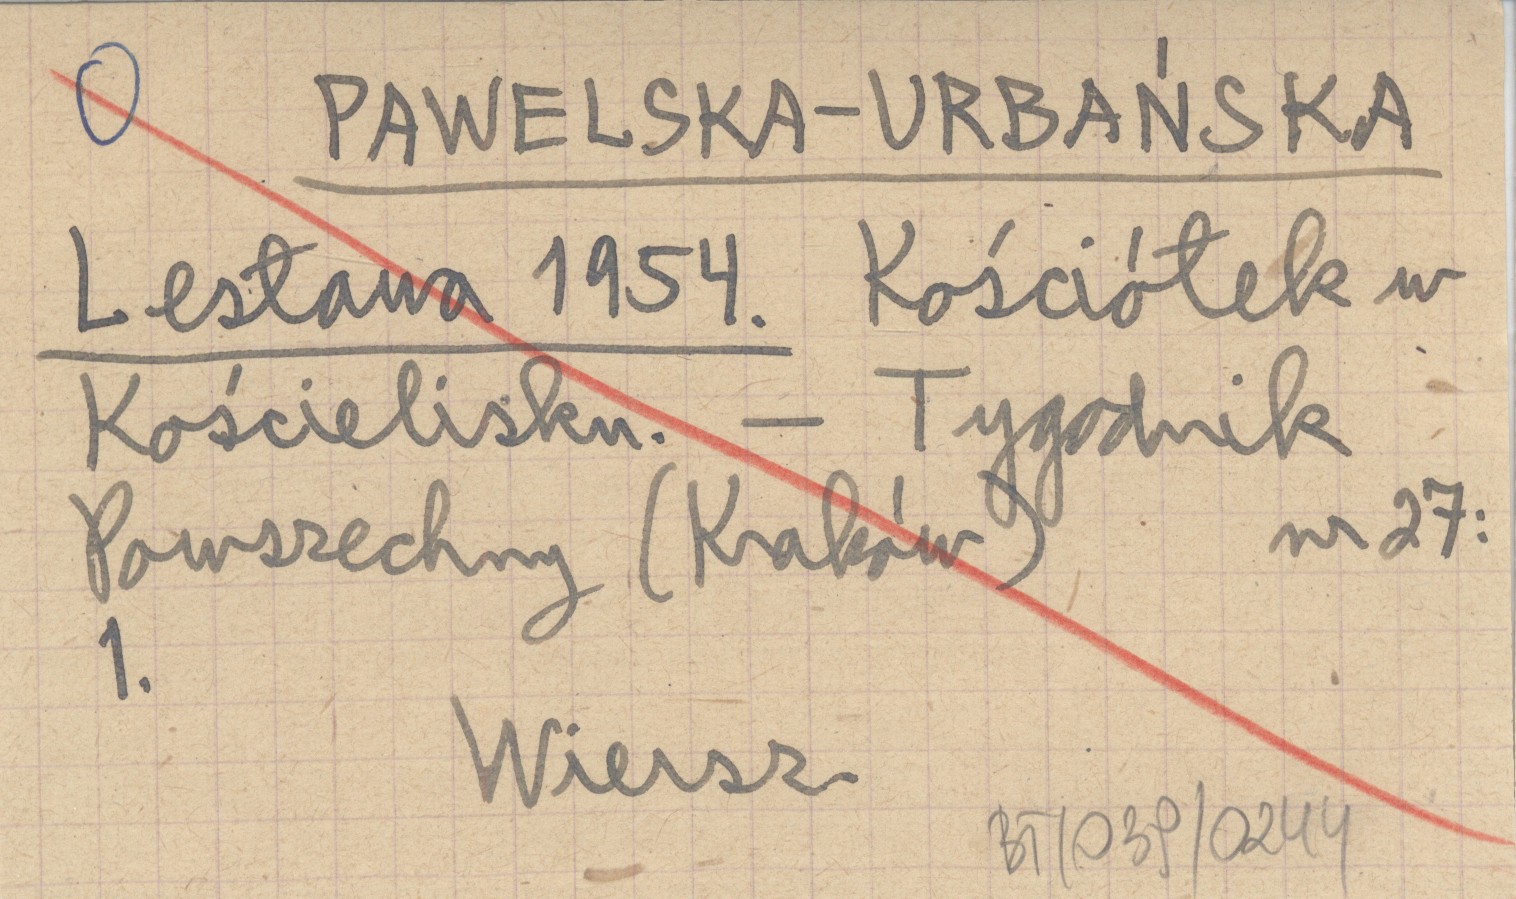 PAWELSKA-URBAŃSKA
Lesława 1954. Kościółek w
Kościelisku. — Tygodnik
Powszechny (Kraków) nr 27:
1.
Wiersz
BT/039/0244